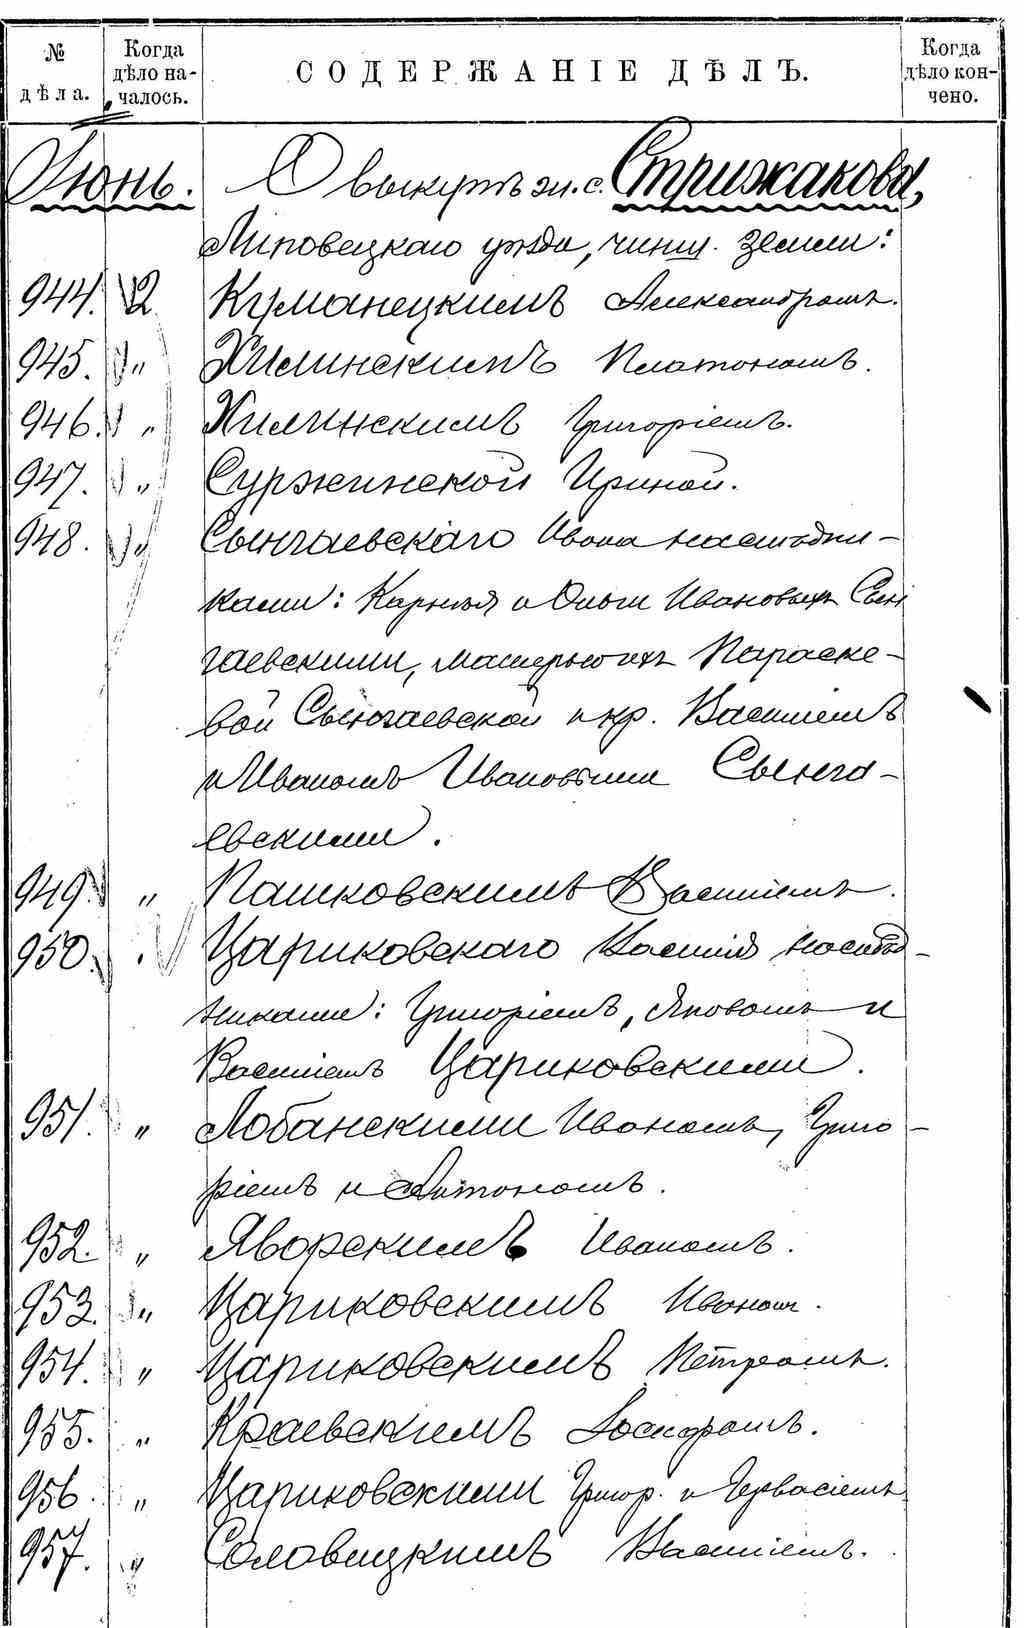 № дѣла.
Когда дѣло началось.
СОДЕРЖАНІЕ ДѢЛЪ.
Когда дѣло кончено.
Іюнь. О выкупѣ ж. с. Стрижакова,
Липовецкаго уѣзда, чинш. земли:
944. 12 Куманецкимъ Александромъ.
945. " Хилинскимъ Платономъ.
946. " Хилинскимъ Григоріемъ.
947. " Суржинской Ириной.
948. " Сынгаевскаго Ивана наслѣдни-
ками: и Ольги Ивановыхъ Сын
гаевскими, матерью ихъ Параске-
вой Сынгаевской и кр. Василіемъ
и Иваномъ Ивановыми Сынга-
евскими.
949. " Пашковскимъ Василіемъ.
950. Цариковскаго Василія наслѣд-
никами: Григоріемъ, Яковомъ и
Василіемъ Цариковскими.
951. " Лобанскими Иваномъ, Григо-
ріемъ и Антономъ.
952. " Яворскимъ Иваномъ.
953. " Цариковскимъ Иваном.
954. " Цариковскимъ Петромъ.
955. " Краевскимъ Іосифомъ.
956. " Цариковскими Григор. и Гервасіемъ
957. " Соловицкимъ Василіемъ.